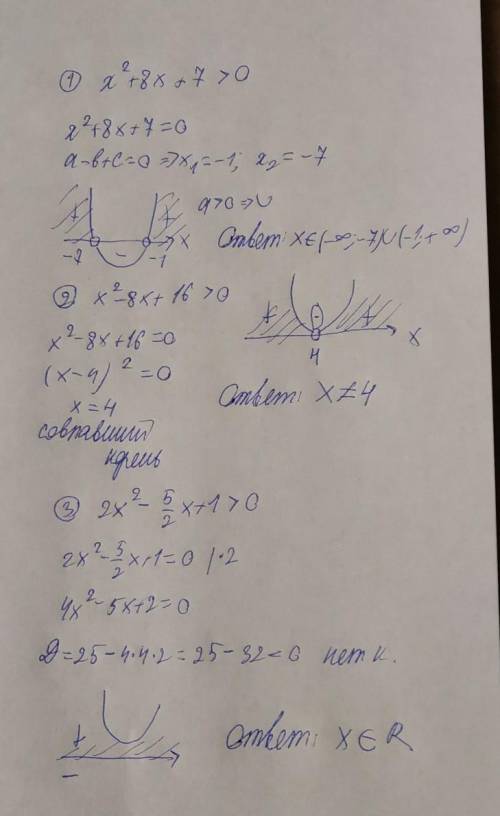 ① x²+8x+7>0
x²+8x+7=0
a-b+c=0 ⇒ x₁=-1; x₂=-7
+ + a>0 ⇒ ∪
-7 - -1 x
Ответ: x∈(-∞;-7)∪(-1;+∞)
② x²-8x+16>0
+ - + x
4
x²-8x+16=0
(x-4)²=0
x=4
совпавший
корень
Ответ: x≠4
③ 2x²-5/2x+1>0
2x²-5/2x+1=0 |·2
4x²-5x+2=0
D=25-4·4·2=25-32<0 нет к.
+
-
Ответ: x∈R